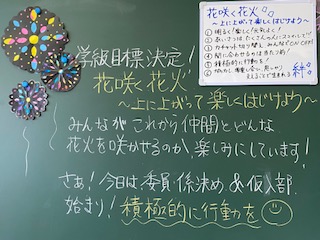 学級目標決定！
花咲く花火
〜上に上がって楽しくはじけよう〜
みんながこれから仲間とどんな
花火を咲かせるのか、楽しみにしています！
さぁ！今日は、委員・係決め、&仮入部
始まり！積極的に行動を
花咲く花火
〜上に上がって楽しくはじけよう〜
① 明るく！楽しく！元気よく！
② あいさつは
③ みんなで ON OFF
④
⑤ 積極的に行動を！
⑥
絆